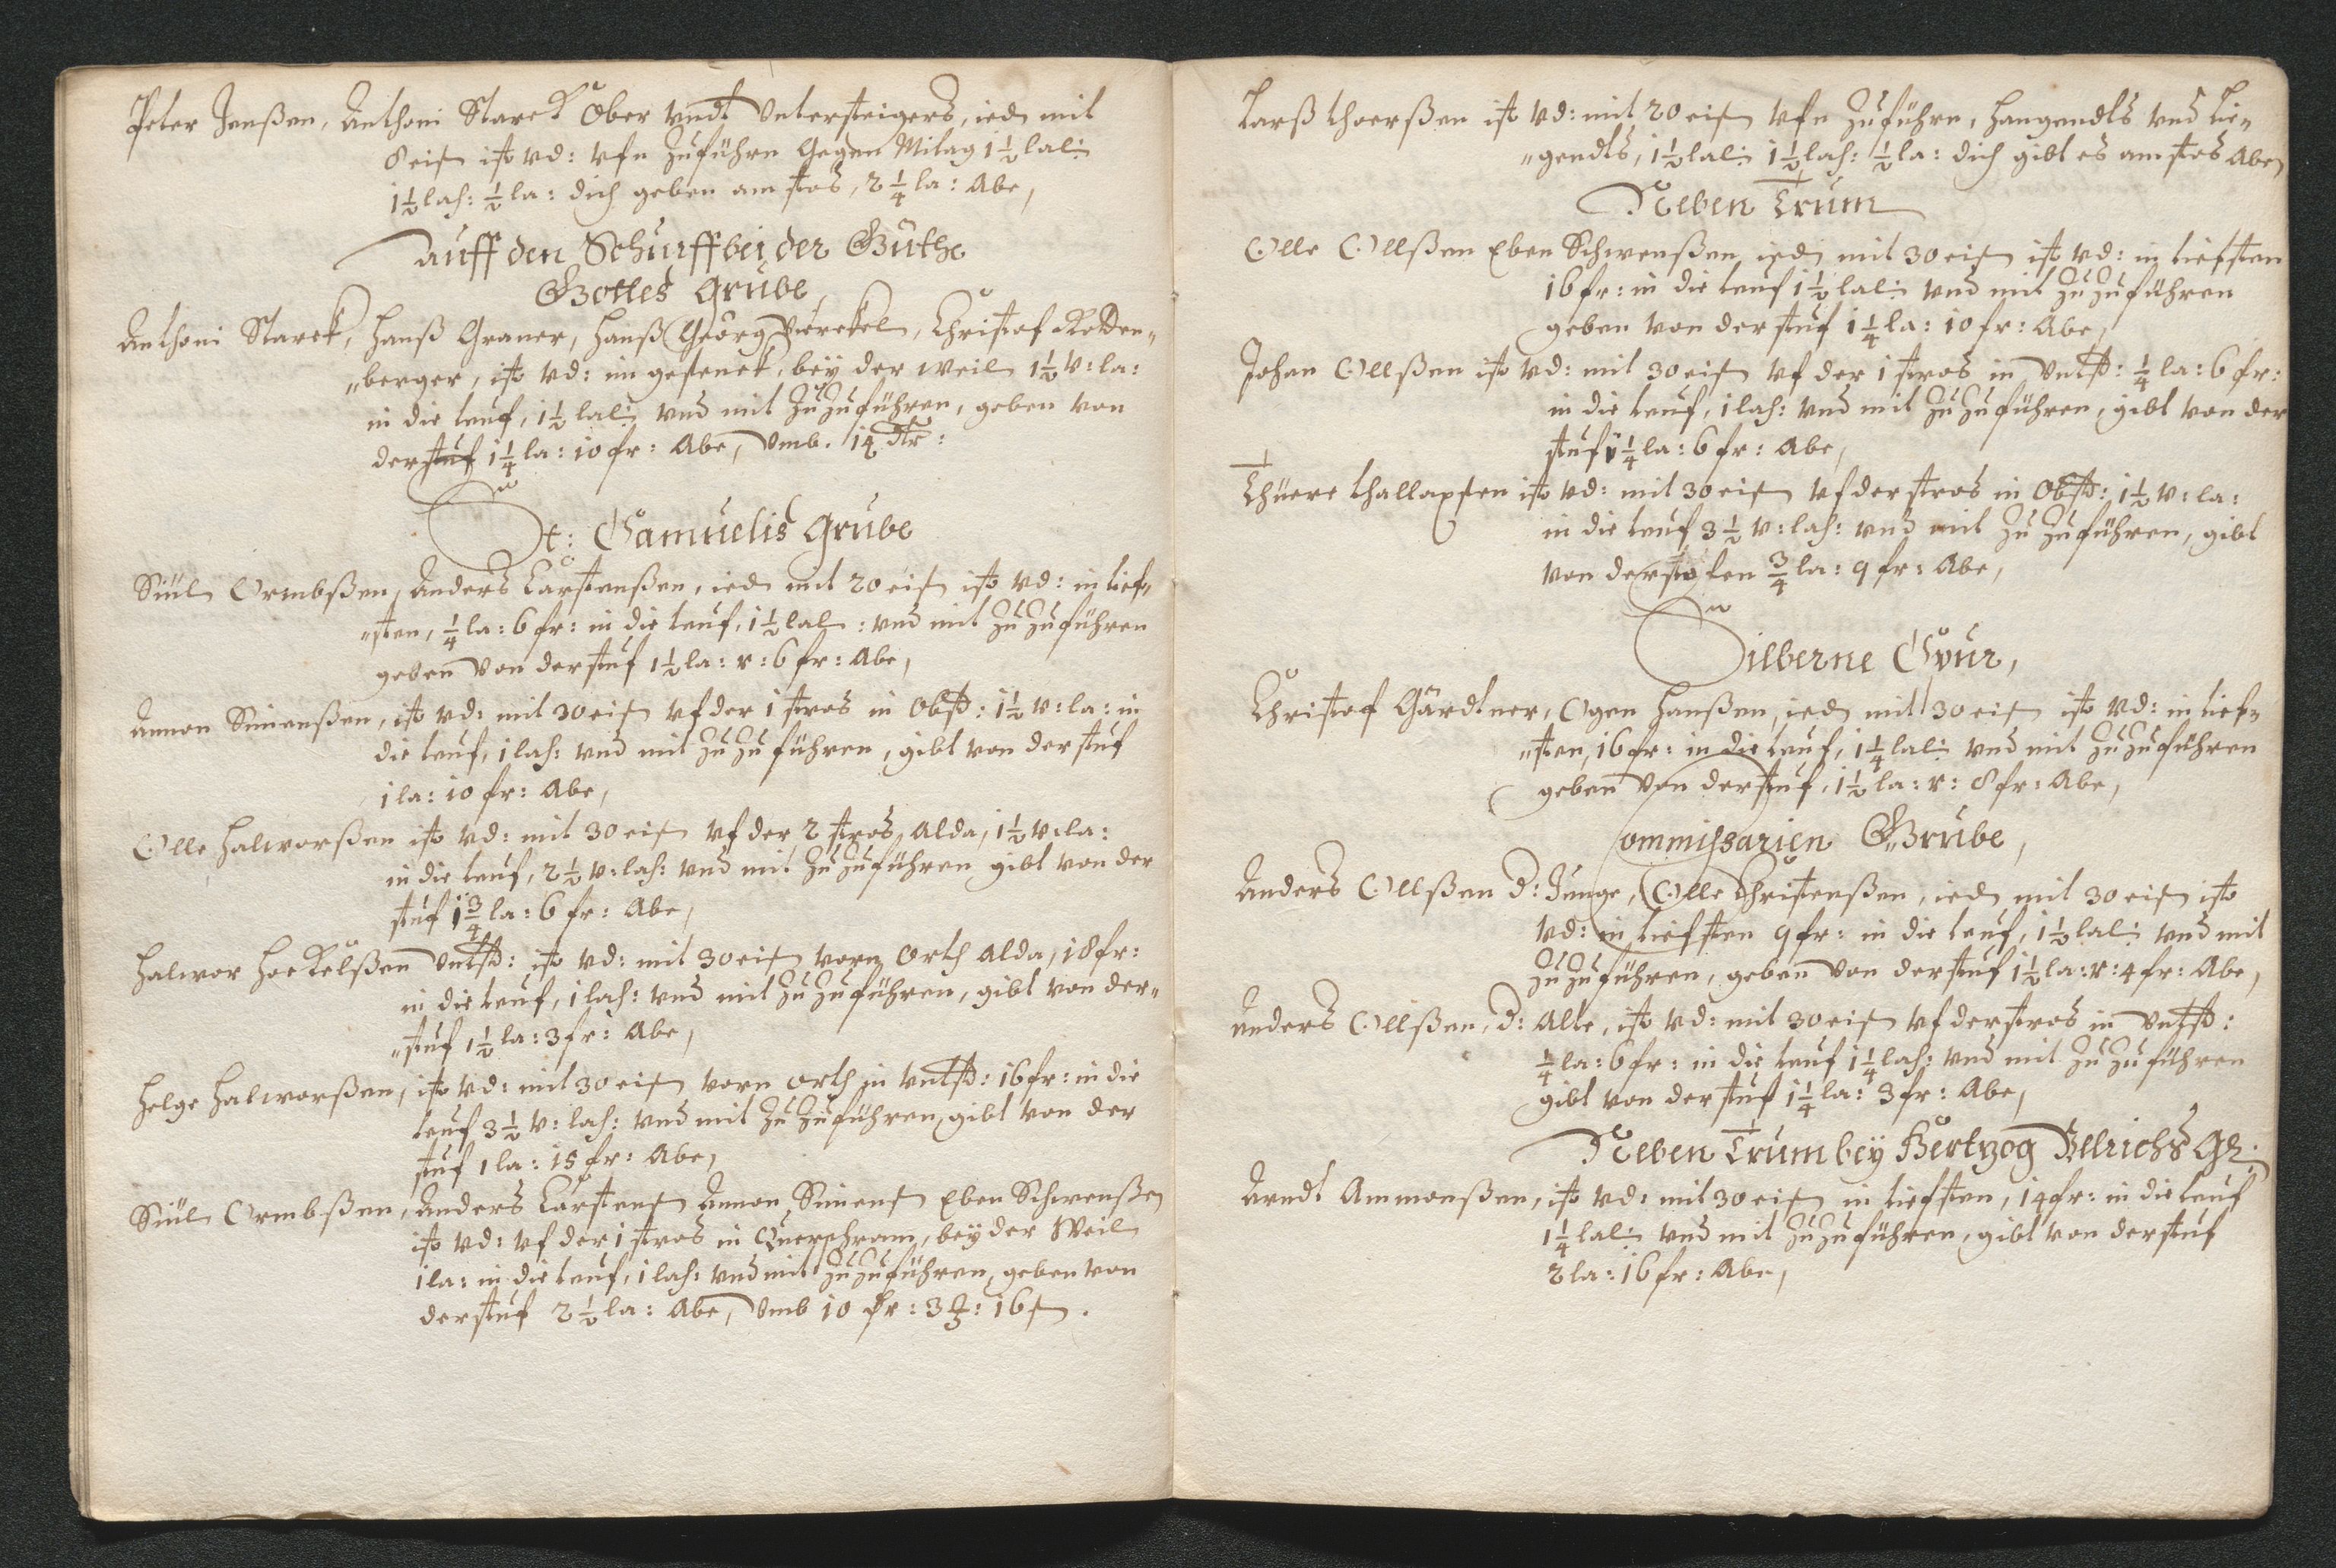 Peter Jenßen, Anthoni Starck Ober vndt Untersteigers, ied mit
8 eisn ist vd: vfn zuführn Gegen Mitag 1½ lal:
1½ lach: ½ la: dich geben am stos, 2¼ la: Abe,
auff den Schurff bei der Guthe
Gottes Grube,
Anthoni Starck, Hanß Graner, Hanß Georg Vierekel, Christof Rotten„
„berger, ist vd: im gesenck, bey der weil 1½ v: la:
in die teuf, 1½ lal: vnd mit Zu Zuführen, geben von
der stuf 1¼ la: 10 fr: Abe, Vmb. 14 dlr:
St: Samuelis Grube
Siul Ormbßen, Anders Carstenßen, ied mit 20 eisn ist vd: in tief„
„sten, ¼ la: 6 fr: in die teuf, 1½ lal: vnd mit Zu Zuführen
geben von der stuf 1½ la: v: 6 fr: Abe,
Amon Simenßen, ist vd: mit 30 eisn vf der 1 stros in Obst: 1½ v: la: in
die teuf, 1 lach: vnd mit Zu Zu führen, gibt von der stuf
1 la: 10 fr: Abe,
Olle Halworßen ist vd: mit 30 eisn vf der 2 stros, Alda, 1½ v: la:
in die teuf, 2½ v: lach: vnd mit Zu Zuführen gibt von der
stuf 1¾ la: 6 fr: Abe,
Halwor Hoekelßen Vntst: ist vd: mit 30 eisn vorn Orth Alda, 18 fr:
in die teuf, 1 lach: vnd mit Zu Zuführen, gibt von der„
„stuf 1½ la: 3 fr: Abe,
Helge Halworßen, ist vd: mit 30 eisn vorn orth in vntst: 16 fr: in die
teuf 3½ v: lach: vnd mit Zu Zuführen, gibt von der
stuf 1 la: 15 fr: Abe,
Siul Ormbßen, Anders Carstens Amon Simens Eben Schwenßen
ist vd: vf der 1 stros in Querschram, bey der Weil
1 la: in die teuf, 1 lach: vnd mit Zu Zuführen, geben von
der stuf 2½ la: Abe, Vmb 10 fr: 3 : 16 s.
Larß Thoerßen ist vd: mit 20 eisn vfn Zuführn, Hangendts vnd Lie„
„gendts, 1½ lal: 1½ lach: ½ la: dich gibt es am stos Abe,
Neben Trum
Olle Ollßen Eben Schwenßen ied mit 30 eisn ist vd: in tiefsten
16 fr: in die teuf 1½ lal: vnd mit Zu Zuführen
geben von der stuf 1¼ la: 10 fr: Abe,
Johan Ollßen ist vd: mit 30 eisn vf der 1 stros in Vntst: ¼ la: 6 fr:
in die teuf, 1 lach: vnd mit Zu Zuführen, gibt von der
stuf 1¼ la: 6 fr: Abe,
Thuere Thallaxsen ist vd: mit 30 eisn vf der stros in Obst: 1½ v: la:
in die teuf 3½ v: lach: vnd mit Zu Zuführen, gibt
von der stufen ¾ la: 9 fr: Abe,
Silberne Spur,
Christof Gärdtner, Ogen Hanßen, ied mit 30 eisn ist vd: in tief„
„sten, 16 fr: in die teuf, 1¼ lal: vnd mit Zu Zuführen
geben von der stuf, 1½ la: v: 8 fr: Abe,
Commissarien Grube,
Anders Ollßen d: Junge, Olle Christenßen, ied mit 30 eisn ist
vd: in tiefsten 9 fr: in die teuf, 1½ lal: vnd mit
Zu Zuführen, geben von der stuf 1½ la: v: 4 fr: Abe,
Anders Ollßen, d: Alte, ist vd: mit 30 eisn vf der stros in Vntst:
¼ la: 6 fr: in die teuf 1¼ lach: vnd mit Zu Zuführen
gibt von der stuf 1¼ la: 3 fr: Abe,
Neben Trum bey Hertzog Ullrichs Gr:
Arndt Ammonßen, ist vd: mit 30 eisn in tiefsten, 14 fr: in die teuf
1¼ lal: vnd mit Zu Zuführen, gibt von der stuf
2 la: 16 fr: Abe,